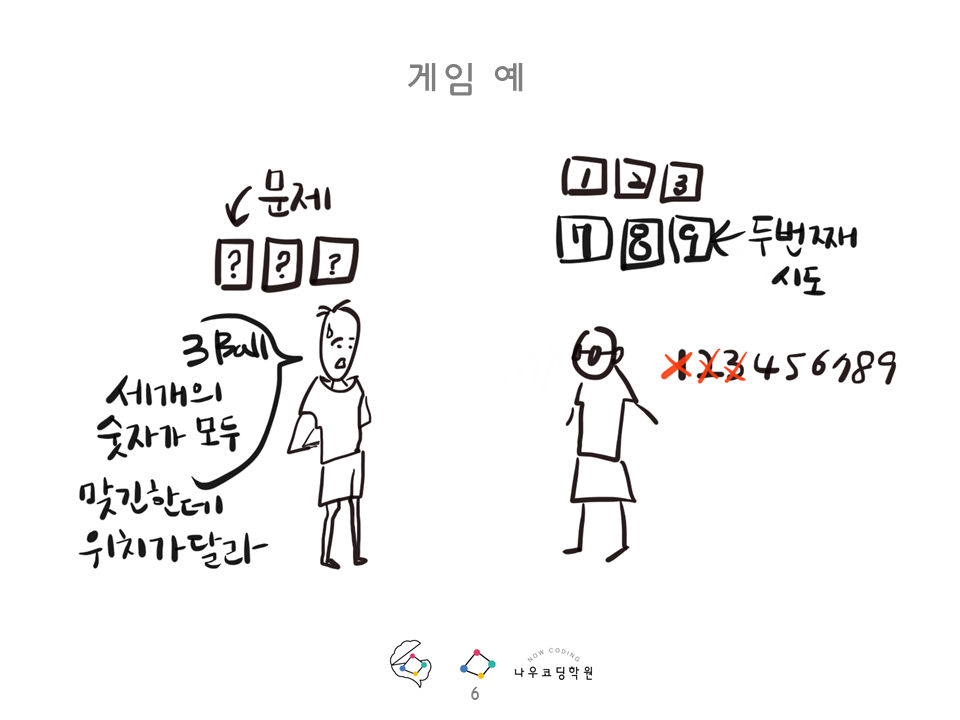 게임 예
문제
? ? ?
3 Ball
세개의
숫자가 모두
맞긴한데
위치가달라
1 2 3
7 8 9
두번째
시도
1 2 3 4 5 6 7 8 9
NOW CODING
나우코딩학원
6